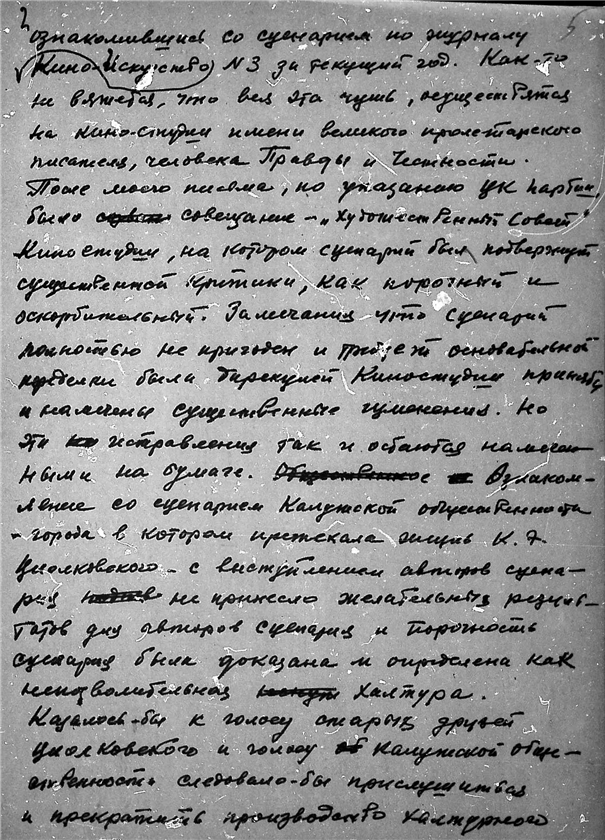 5
ознакомившись со сценарием по журналу
Кино-Искусство N 3 за текущий год. Как-то
не вяжется, что вся эта чушь, осуществятся
на кино-студии имени великого пролетарского
писателя, человека Правды и Честности.
После моего письма, по указанию ЦК партии,
было совещание - "Художественный Совет"
Киностудии, на котором сценарий был подвергнут
существенной критики, как порочный и
оскорбительный. Замечания что сценарий
полностью не пригоден и требует основательной
переделки были дирекцией Киностудии приняты
и намечены существенные изменения. Но
эти исправления так и остаются намечен-
ными на бумаге. Общественное Ознаком-
ление со сценарием Калужской общественности
- города в котором протекала жизнь К. Э.
Циолковского - с выступлением авторов сцена-
рия не принесло желательных резуль-
татов для авторов сценария и порочность
сценария была доказана и определена как
непозволительная халтура.
Казалось-бы к голосу старых друзей
Циолковского и голосу Калужской обще-
ственности следовало-бы прислушиться
и прекратить производство халтурного